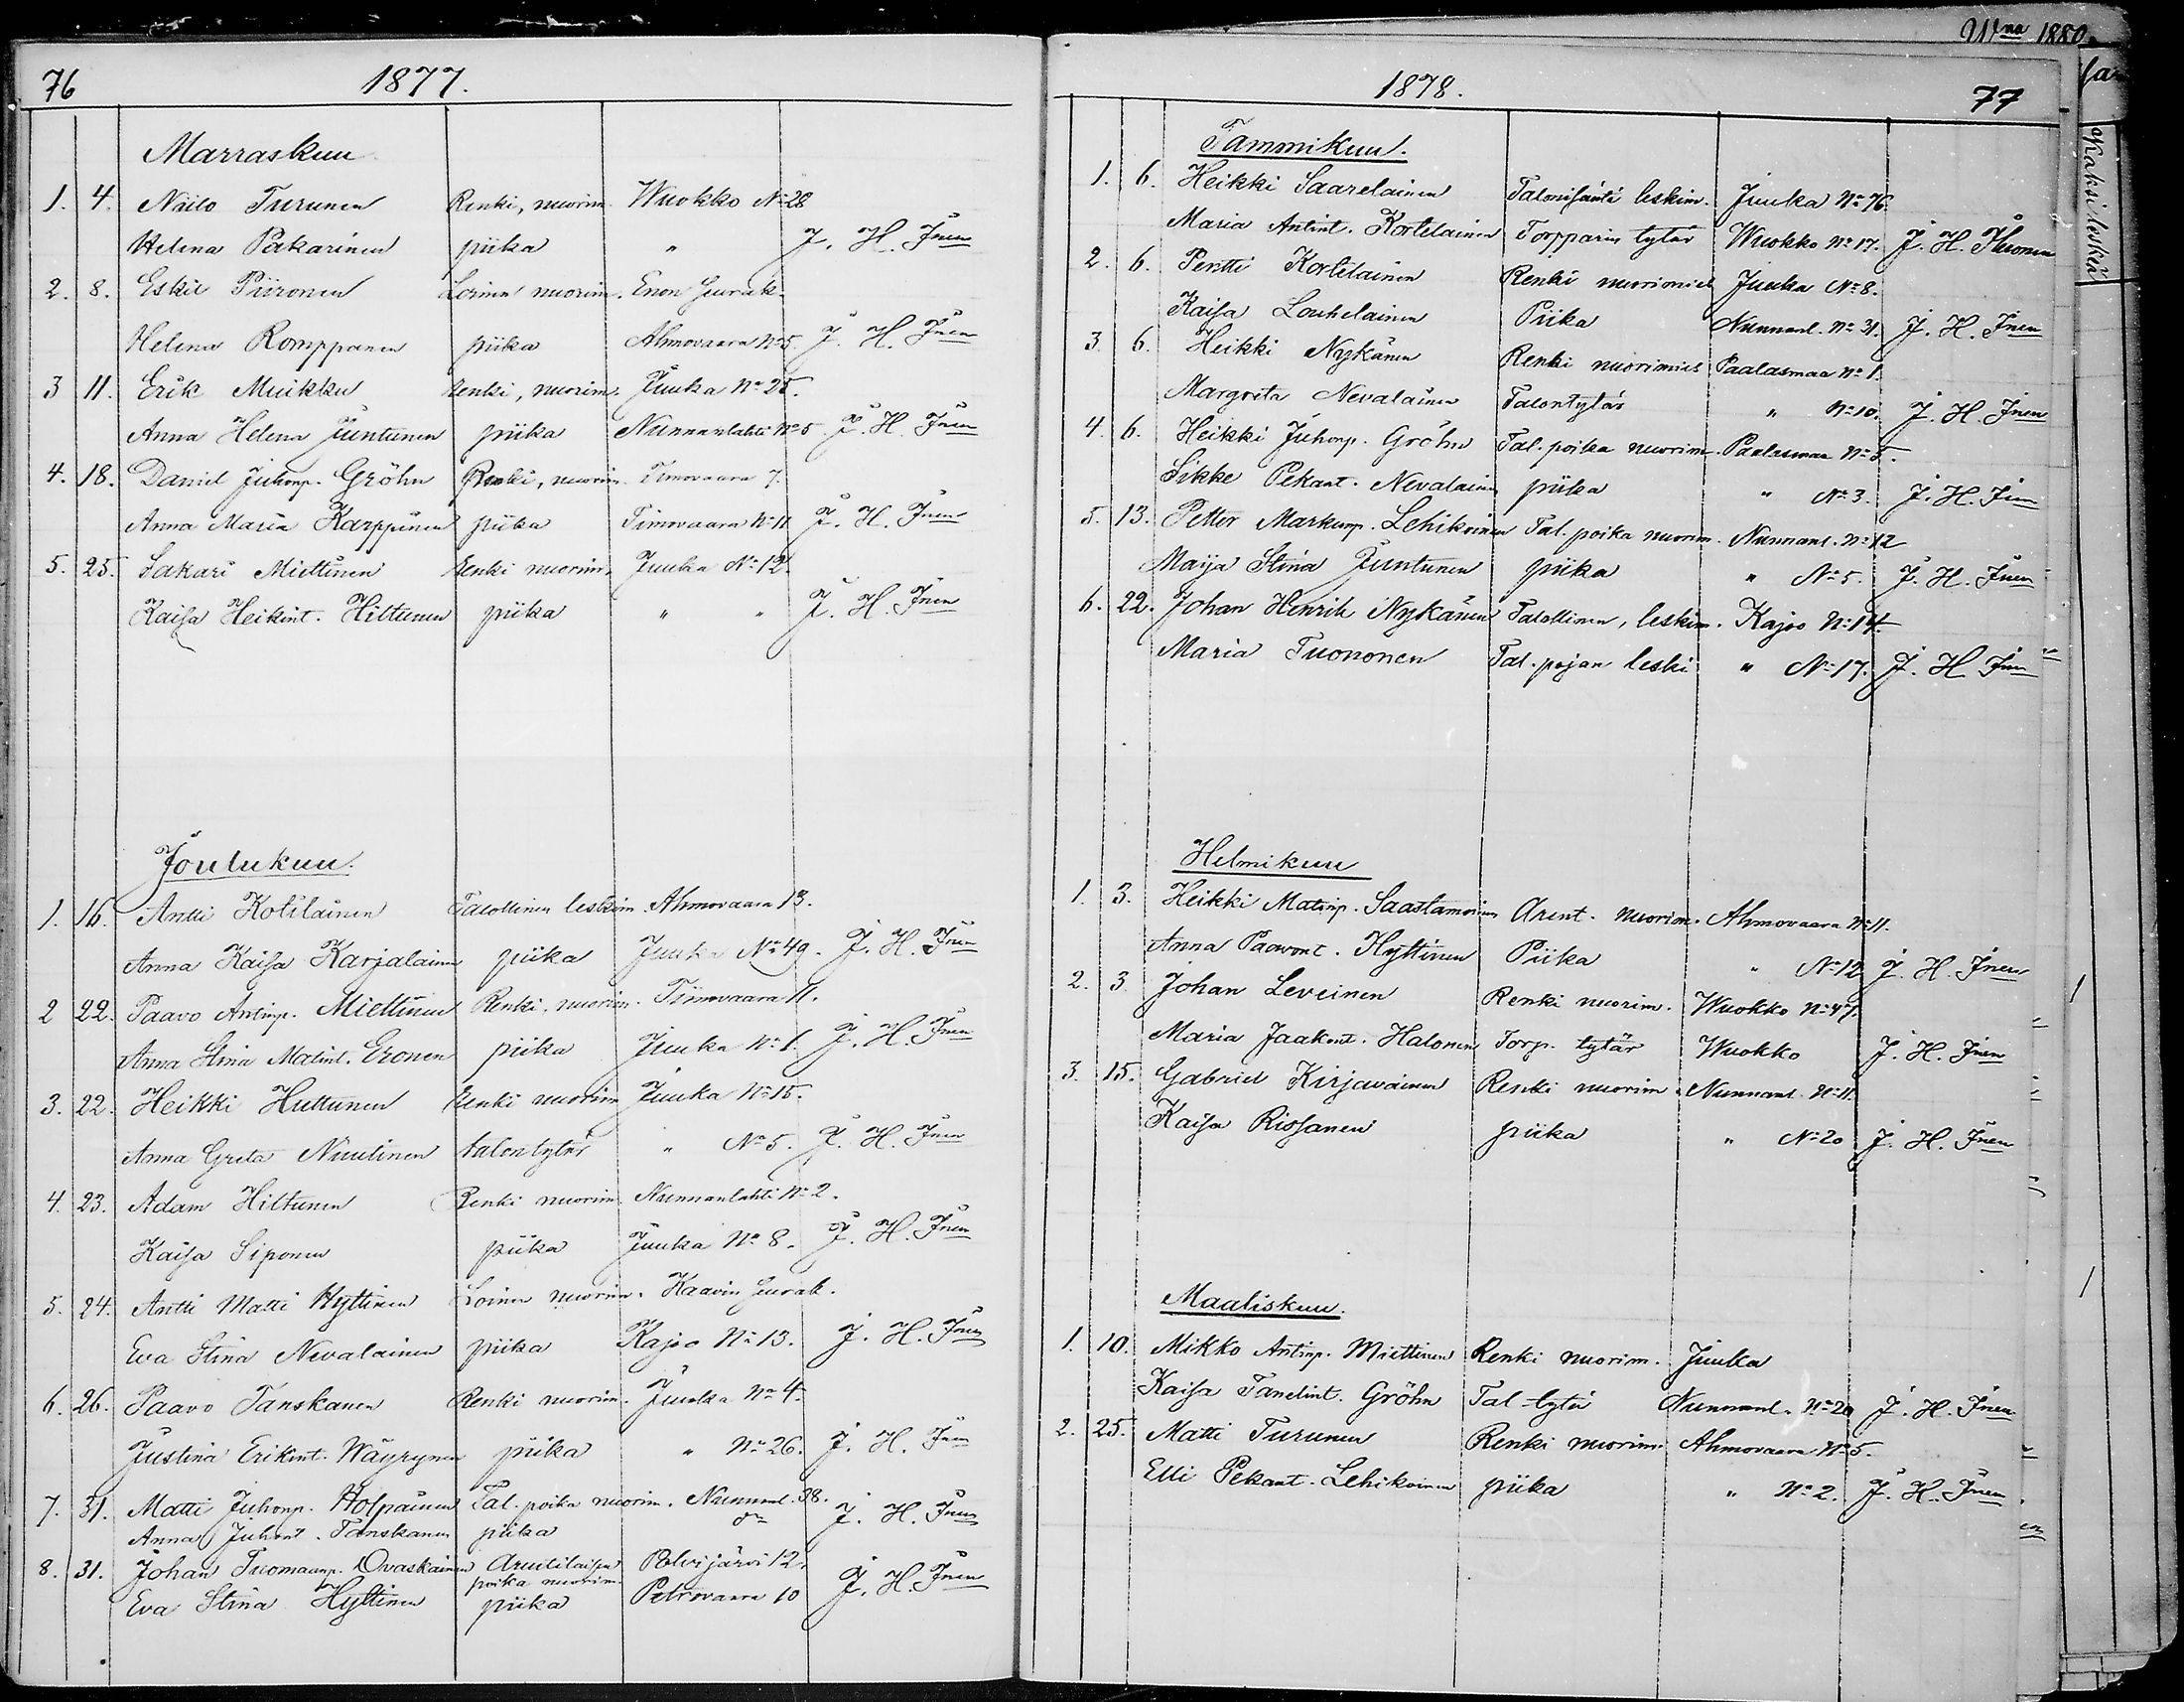 76
1877.
Marraskuu
1. 4. Niilo Turunen Renki, nuorim. Wuokko No 28
Helena Pakarinen piika " J. H. Inen
2. 8. Eskil Piironen Loinen nuorim. Enon seurak.
Helena Romppanen piika Ahmovaara No 5. J. H. Inen
3 11. Erik Muikku Renki, nuorim. Juuka No 25.
Anna Helena Juntunen piika Nunnanlahti No 5. J. H. Inen
4. 18. Daniel Juhonp. Gröhn Renki, nuorim. Timovaara 7.
Anna Maria Karppinen piika Timovaara No 11 J. H. Inen
5. 25. Sakari Miettinen Renki nuorim. Juuka No 12.
Kaisa Heikint. Hiltunen piika " " J. H. Inen
Joulukuu.
1. 16. Antti Kotilainen Talollinen leskim. Ahmovaara 13.
Anna Kaisa Karjalainen piika Juuka No 49. J. H. Inen
2 22. Paavo Antinp. Miettinen Renki, nuorim. Timovaara 11.
Anna Stina Matint. Eronen piika Juuka No 1. J. H. Inen
3. 22. Heikki Huttunen Renki nuorim Juuka No 15.
Anna Greta Nuutinen talontytär " No 5. J. H. Inen
4. 23. Adam Hiltunen Renki nuorim. Nunnanlahti No 2.
Kaisa Siponen piika Juuka No 8. J. H. Inen
5. 24. Antti Matti Hyttinen Loinen nuorim. Kaavin seurak.
Eva Stina Nevalainen piika Kajoo No 13. J. H. Inen
6. 26. Paavo Tanskanen Renki nuorim. Juuka No 4.
Justina Erikint. Wäyrynen piika " No 26. J. H. Inen
7. 31. Matti Juhonp. Holpainen Tal. poika nuorim. Nunnanl. 38.
Anna Juhont. Tanskanen piika J. H. Inen
8. 31. Johan Tuomaanp. Ovaskainen Aruitilaisen Polvijärvi 12.
poika nuorim.
Eva Stina Hyttinen piika Petrovaara 10 J. H. Inen
1878.
77
Tammikuu.
1. 6. Heikki Saarelainen Talonisäntä leskim. Juuka No 76.
Maria Antint. Kortelainen Torpparin tytär Wuokko No 17. J. H. Ihonen
2. 6. Pentti Kortelainen Renki nuorimies Juuka No 8.
Kaisa Louhelainen Piika Nunnanl. No 31. J. H. Inen
3 6. Heikki Nykänen Renki nuorimies Paalasmaa No 1.
Margreta Nevalainen Talontytär " No 10. J. H. Inen
4. 6. Heikki Juhonp. Gröhn Tal. poika nuorim. Paalasmaa No 5.
Sikke Pekant. Nevalainen piika " No 3. J. H. Inen
5. 13. Petter Markunp. Lehikoinen Tal. poika nuorim. Nunnanl. No 12
Maija Stina Juntunen piika " No 5. J. H. Inen
6. 22. Johan Henrik Nykänen Talollinen, leskim. Kajoo No 14.
Maria Tuononen Tal. pojan leski " No 17. J. H. Inen
Helmikuu
1. 3. Heikki Matinp. Saastamoinen Arent. nuorim. Ahmovaara No 11.
Anna Paavont. Hyttinen Piika " No 12 J. H. Inen
2. 3 Johan Leveinen Renki nuorim. Wuokko No 47.
Maria Jaakont. Halonen Torp. tytär Wuokko J. H. Inen
3. 15. Gabriel Kirjavainen Renki nuorim. Nunnanl. No 11.
Kaisa Rissanen piika " No 20 J. H. Inen
Maaliskuu.
1. 10. Mikko Antinp. Miettinen Renki nuorim. Juuka
Kaisa Tanelint. Gröhn Tal tytär Nunnanl. No 20 J. H. Inen
2. 25. Matti Turunen Renki nuorim. Ahmovaara No 5.
Elli Pekant. Lehikoinen piika " No 2. J. H. Inen
1880.
Kaksi leskeä